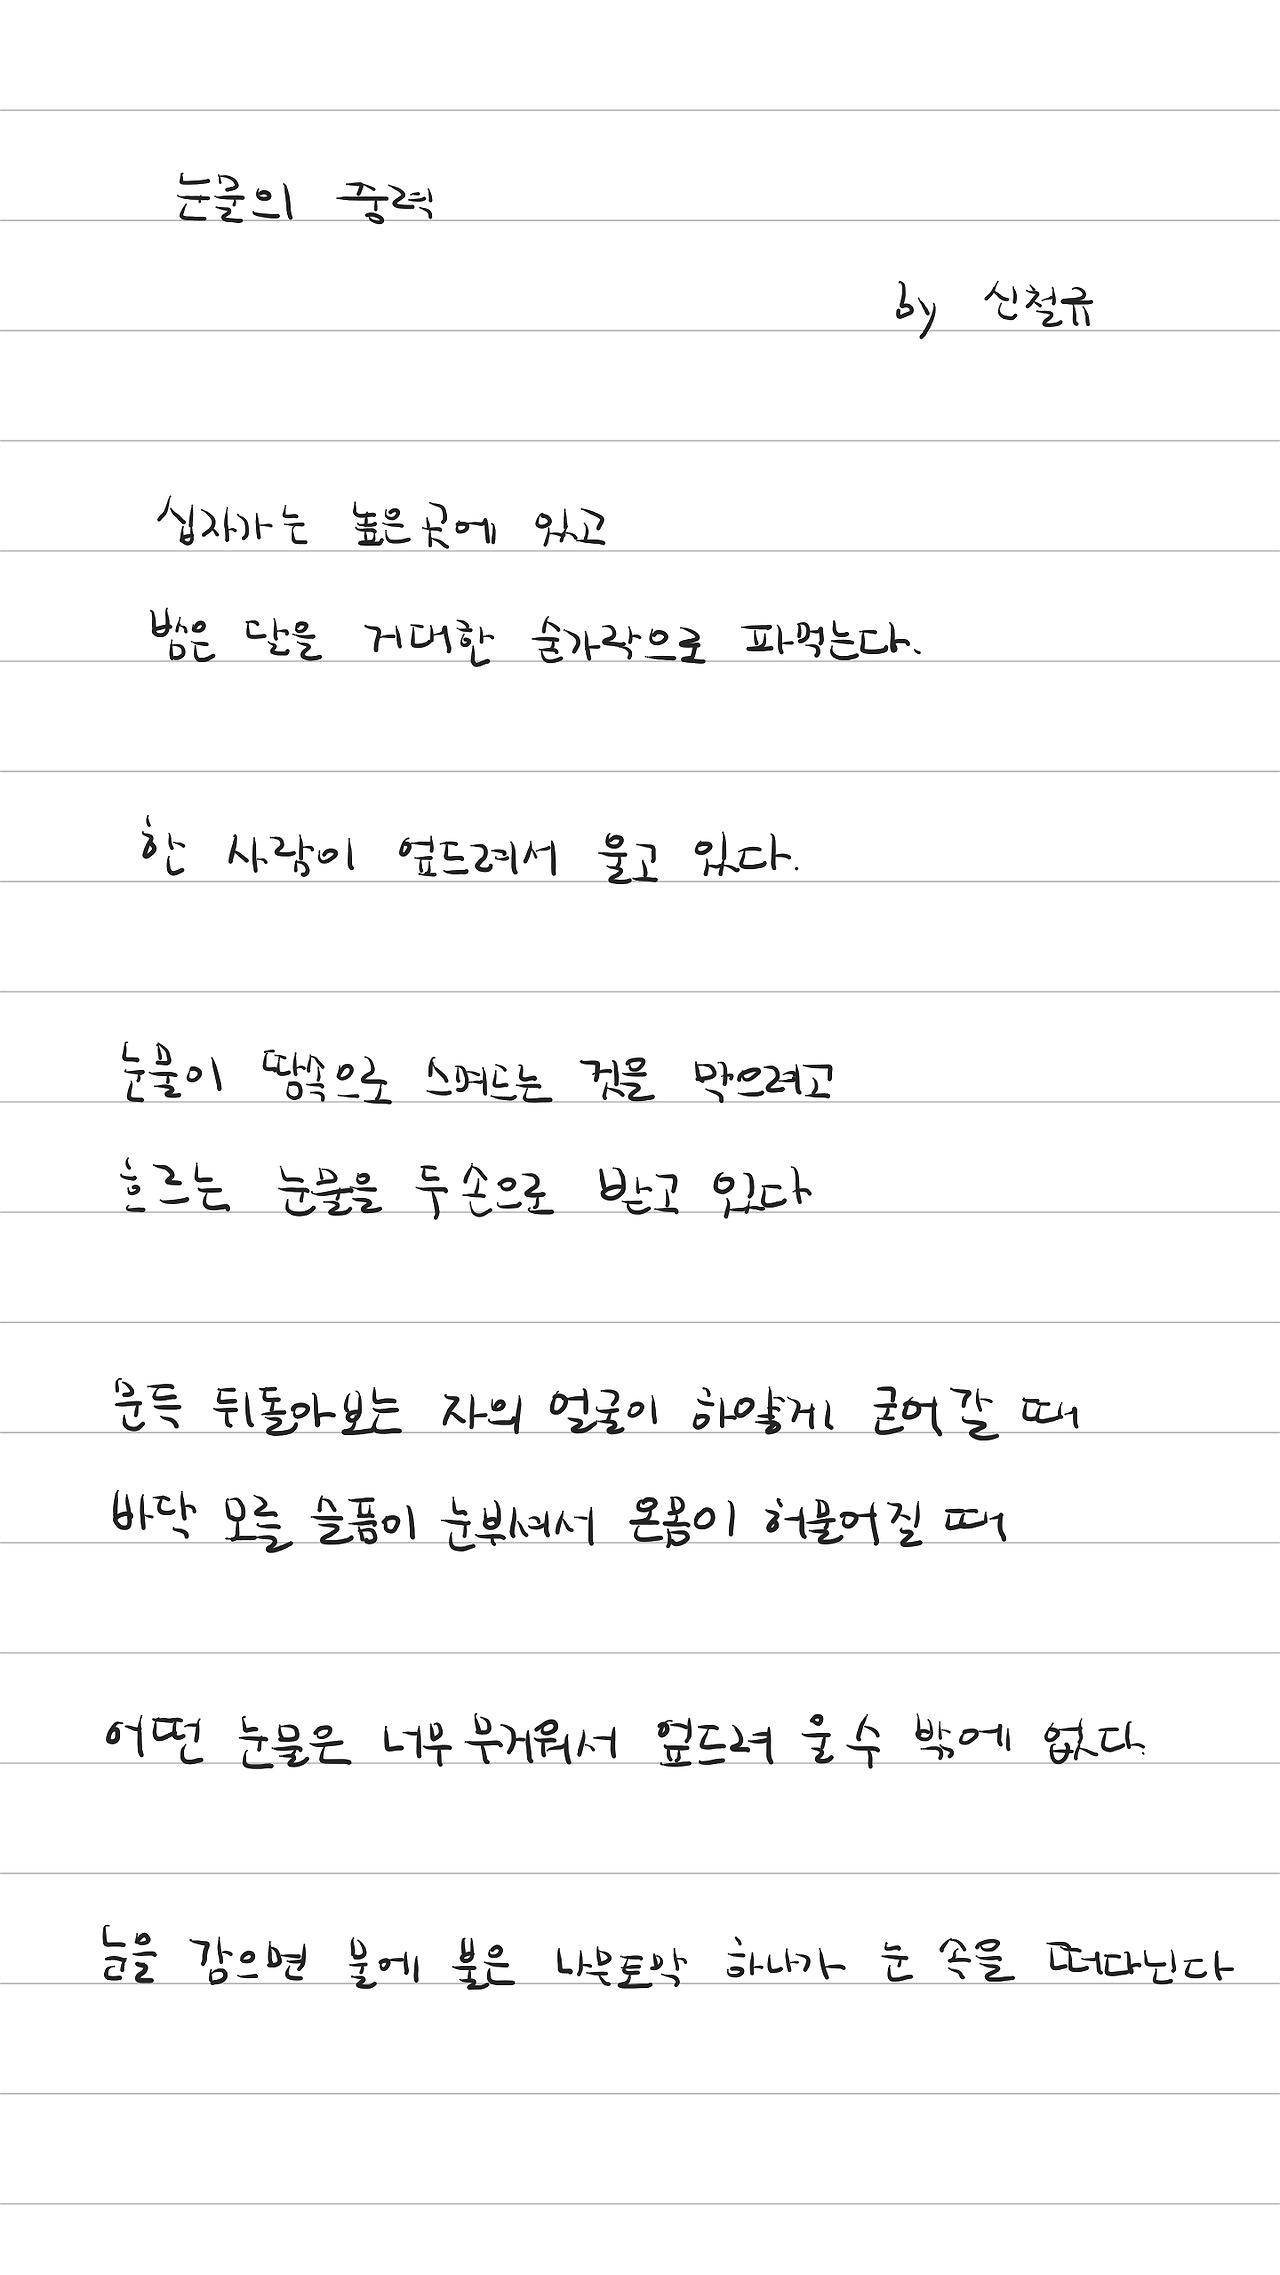 눈물의 중력
by 신철규
십자가는 높은 곳에 있고
밤은 달을 거대한 숟가락으로 파먹는다.
한 사람이 엎드려서 울고 있다.
눈물이 땅속으로 스며드는 것을 막으려고
흐르는 눈물을 두 손으로 받고 있다
문득 뒤돌아보는 자의 얼굴이 하얗게 굳어갈 때
바닥 모를 슬픔이 눈부셔서 온몸이 허물어질 때
어떤 눈물은 너무 무거워서 엎드려 울 수 밖에 없다.
눈을 감으면 물에 불은 나무토막 하나가 눈 속을 떠다닌다